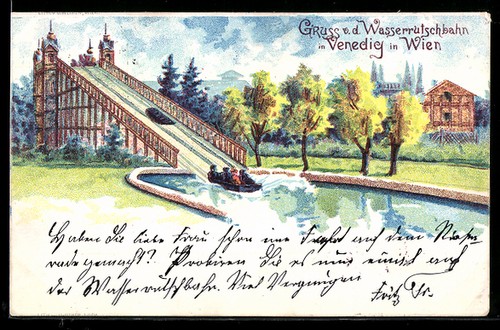 Gruss v. d. Wasserrutschbahn
in Venedig in Wien
Haben Sie liebe Frau schon eine Fahrt auf dem Riesen
rade gemacht? Probiren Sie es nun einmal auf
der Wasserrutschbahn. Viel Vergnügen
Fritz